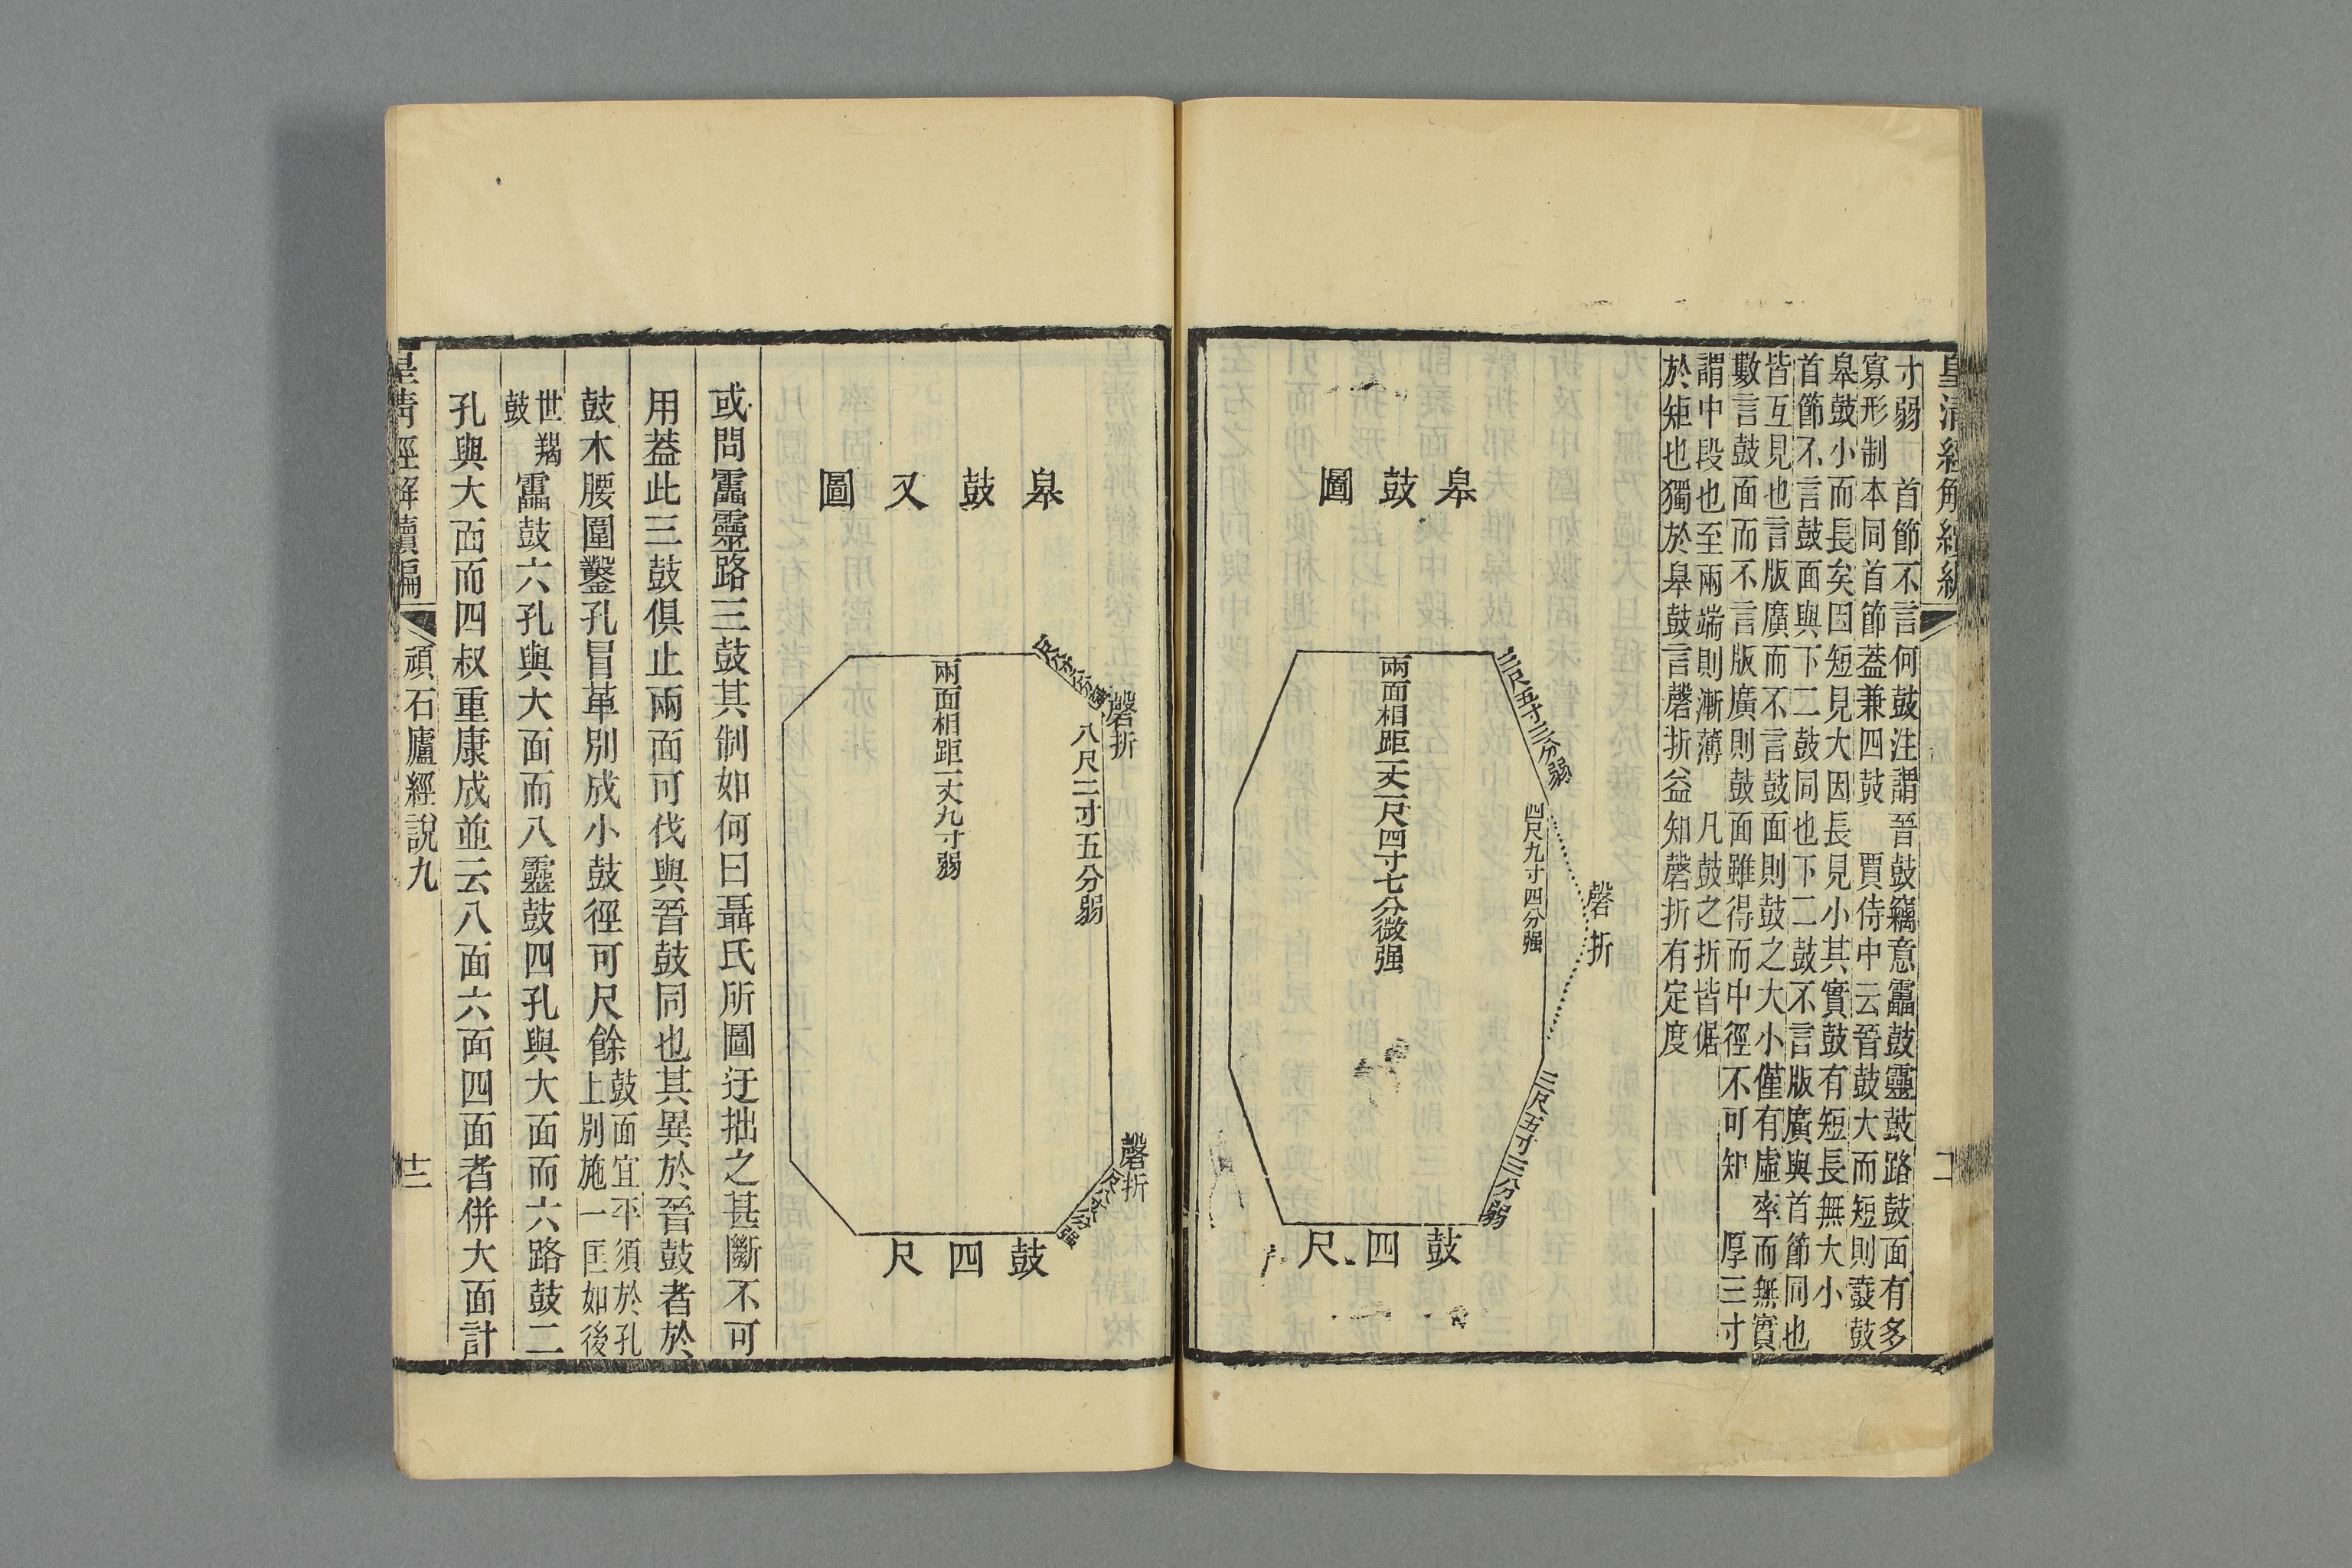 皇清經解續編
寸弱　首節不言何鼓注謂晉鼓竊意靁鼓靈鼓路鼓面有多
寡形制本同首節葢兼四鼓　賈侍中云晉鼓大而短則鼖鼓
皋鼓小而長矣因短見大因長見小其實鼓有短長無大小
首節不言鼓面與下二鼓同也下二鼓不言版廣與首節同也
皆互見也言版廣而不言鼓面則鼓之大小僅有虛率而無實
數言鼓面而不言版廣則鼓面雖得而中徑不可知　厚三寸
謂中段也至兩端則漸薄　凡鼓之折皆倨
於矩也獨於皋鼓言磬折益知磬折有定度
皋鼓圖
三尺五寸三分弱
磬折
四尺九寸四分强
三尺五寸三分弱
兩面相距一丈一尺四寸七分微强
鼓四尺
皋鼓又圖
磬折
八尺二寸五分弱
磬折
兩面相距一丈九寸弱
鼓四尺
或問靁靈路三鼓其制如何曰聶氏所圖迂拙之甚斷不可
用葢此三鼓俱止兩面可伐與晉鼓同也其異於晉鼓者於
鼓木腰圍鑿孔冒革別成小鼓徑可尺餘鼓面宜平須於孔上別施一匡如後
世羯鼓靁鼓六孔與大面而八靈鼓四孔與大面而六路鼓二
孔與大面而四叔重康成並云八面六面四面者併大面計
皇清經解續編
頑石廬經說九
十二